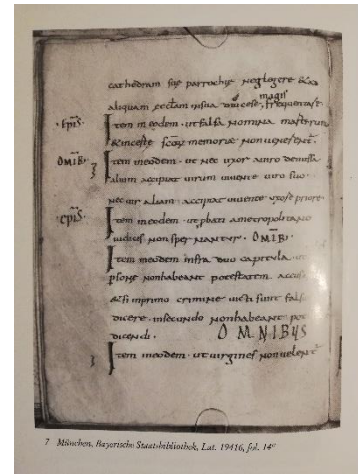 cathedram suę parrochię neglegere &
magis
aliquam ęcclam infra diocese frequentare
·EPIS· Item in eodem · ut falsa nomina marturum
& incestę scorum memorię non uenerent
OMIB Item in eodem · ut nec uxor a uiro dimissa
alium accipiat uirum uiuente uiro suo ·
nec uir aliam accipiat uiuente uxore priore ·
·EPIS· Item in eodem · ut pbati a metropolitano
iudices non spernantur · OMIB·
Item in eodem infra duo capitula · ut
psone non habeant potestatem accus
& si in primo crimine uicti sunt fals
dicere · in secundo non habeant pot
dicendi · OMNIBUS
Item in eodem · ut uirgines non uelent
7 München, Bayerische Staatsbibliothek, Lat. 19416, fol. 14v